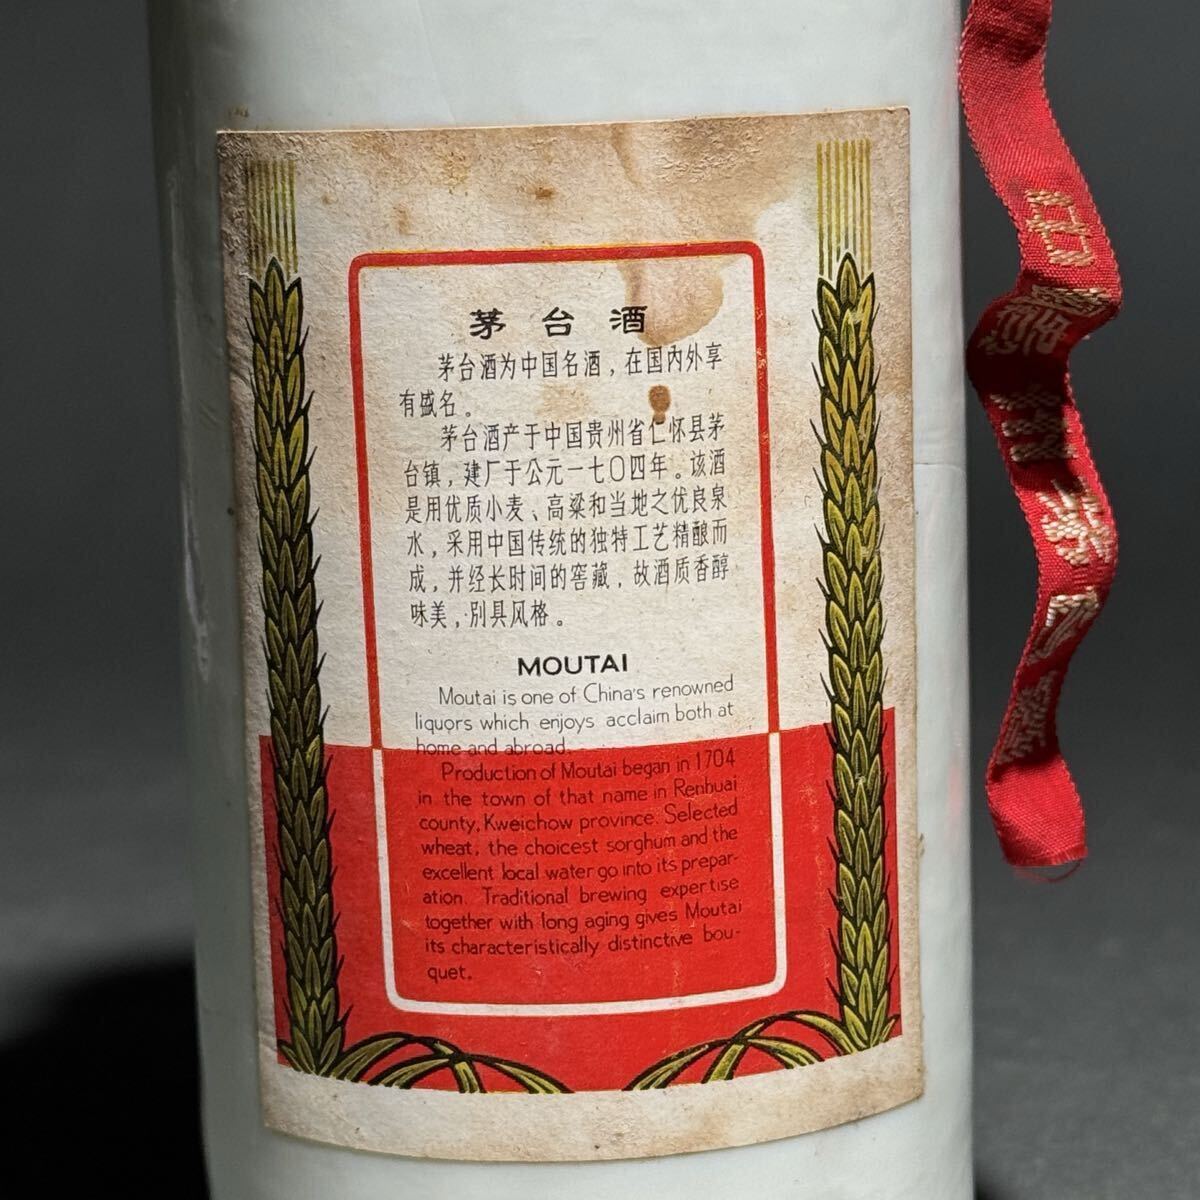 茅台酒
茅台酒为中国名酒，在国内外享
有盛名。
茅台酒产于中国贵州省仁怀县茅
台镇，建厂于公元一七〇四年。该酒
是用优质小麦、高粱和当地之优良泉
水，采用中国传统的独特工艺精酿而
成，并经长时间的窖藏，故酒质香醇
味美，别具风格。
MOUTAI
Moutai is one of China's renowned
liquors which enjoys acclaim both at
home and abroad.
Production of Moutai began in 1704
in the town of that name in Renhuai
county, Kweichow province. Selected
wheat, the choicest sorghum and the
excellent local water go into its prepar-
ation. Traditional brewing expertise
together with long aging gives Moutai
its characteristically distinctive bou-
quet.
中
茅